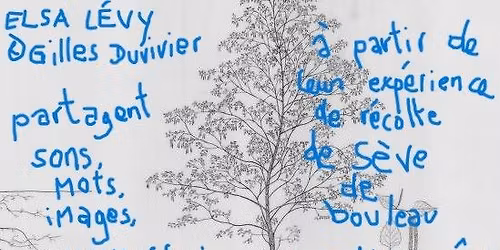 ELSA LÉVY
& Gilles Duvivier
partagent
sons,
mots,
images,
à partir de
leur expérience
de récolte
de sève
de
bouleau